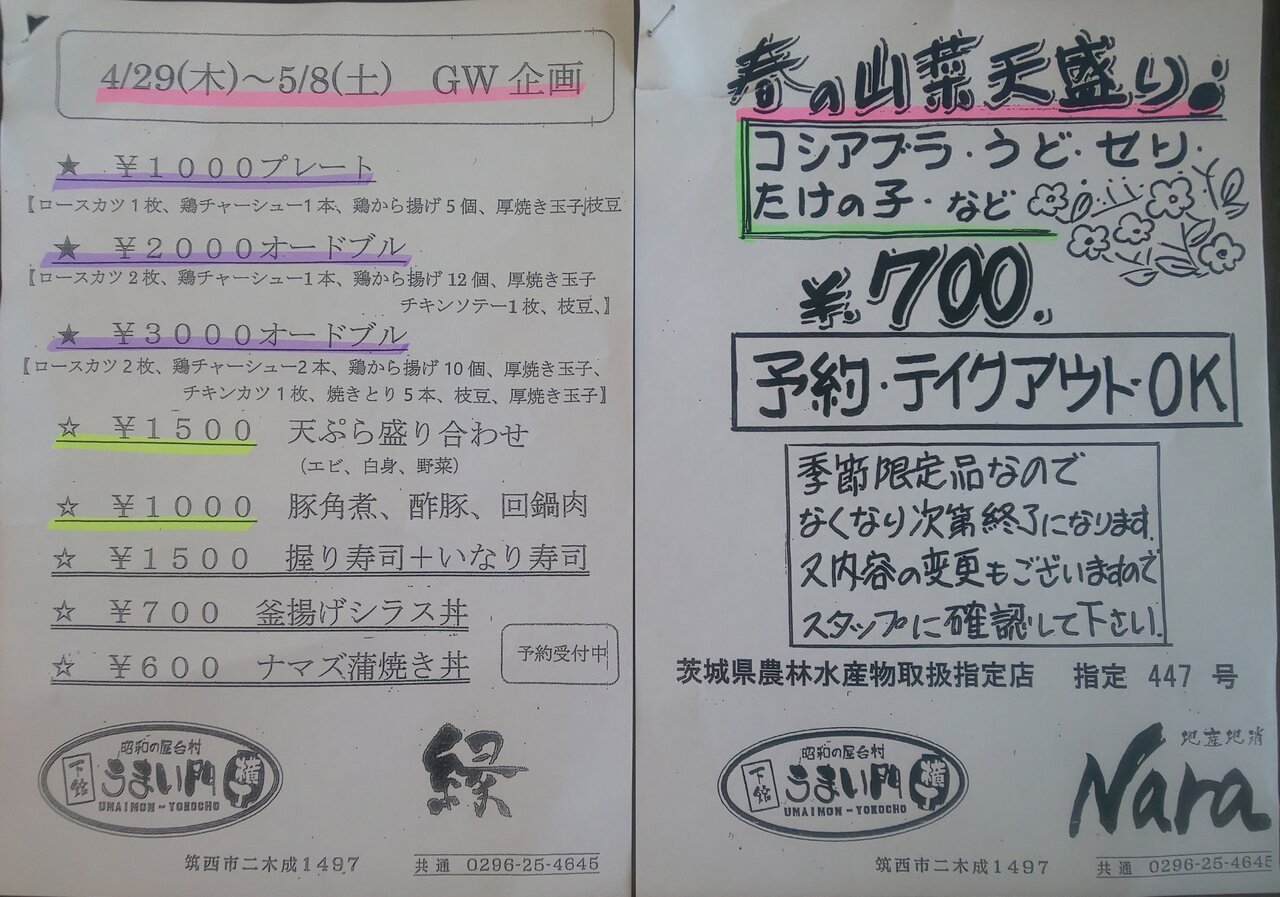 4/29(木)～5/8(土)　GW 企画
★　￥１０００プレート
【ロースカツ１枚、鶏チャーシュー1本、鶏から揚げ５個、厚焼き玉子枝豆
★　￥２０００オードブル
【ロースカツ２枚、鶏チャーシュー1本、鶏から揚げ 12 個、厚焼き玉子
チキンソテー1 枚、枝豆、】
★　￥３０００オードブル
【ロースカツ２枚、鶏チャーシュー2 本、鶏から揚げ 10 個、厚焼き玉子、
チキンカツ 1 枚、焼きとり 5 本、枝豆、厚焼き玉子】
☆　￥１５００　天ぷら盛り合わせ
（エビ、白身、野菜）
☆　￥１０００　豚角煮、酢豚、回鍋肉
☆　￥１５００　握り寿司＋いなり寿司
☆　￥７００　釜揚げシラス丼
☆　￥６００　ナマズ蒲焼き丼
予約受付中
昭和の屋台村
下館
うまい門
横丁
UMAIMON-YOKOCHO
縁
筑西市二木成１４９７
共通　0296-25-4645
春の山菜天盛り
コシアブラ・うど・セリ・
たけの子・など
￥700.
予約・テイクアウト・OK
季節限定品なので
なくなり次第終了になります.
又内容の変更もございますので
スタップに確認して下さい.
茨城県農林水産物取扱指定店　指定 447 号
昭和の屋台村
下館
うまい門
横丁
UMAIMON-YOKOCHO
地産地消
Nara
筑西市二木成１４９７
共通　0296-25-4645